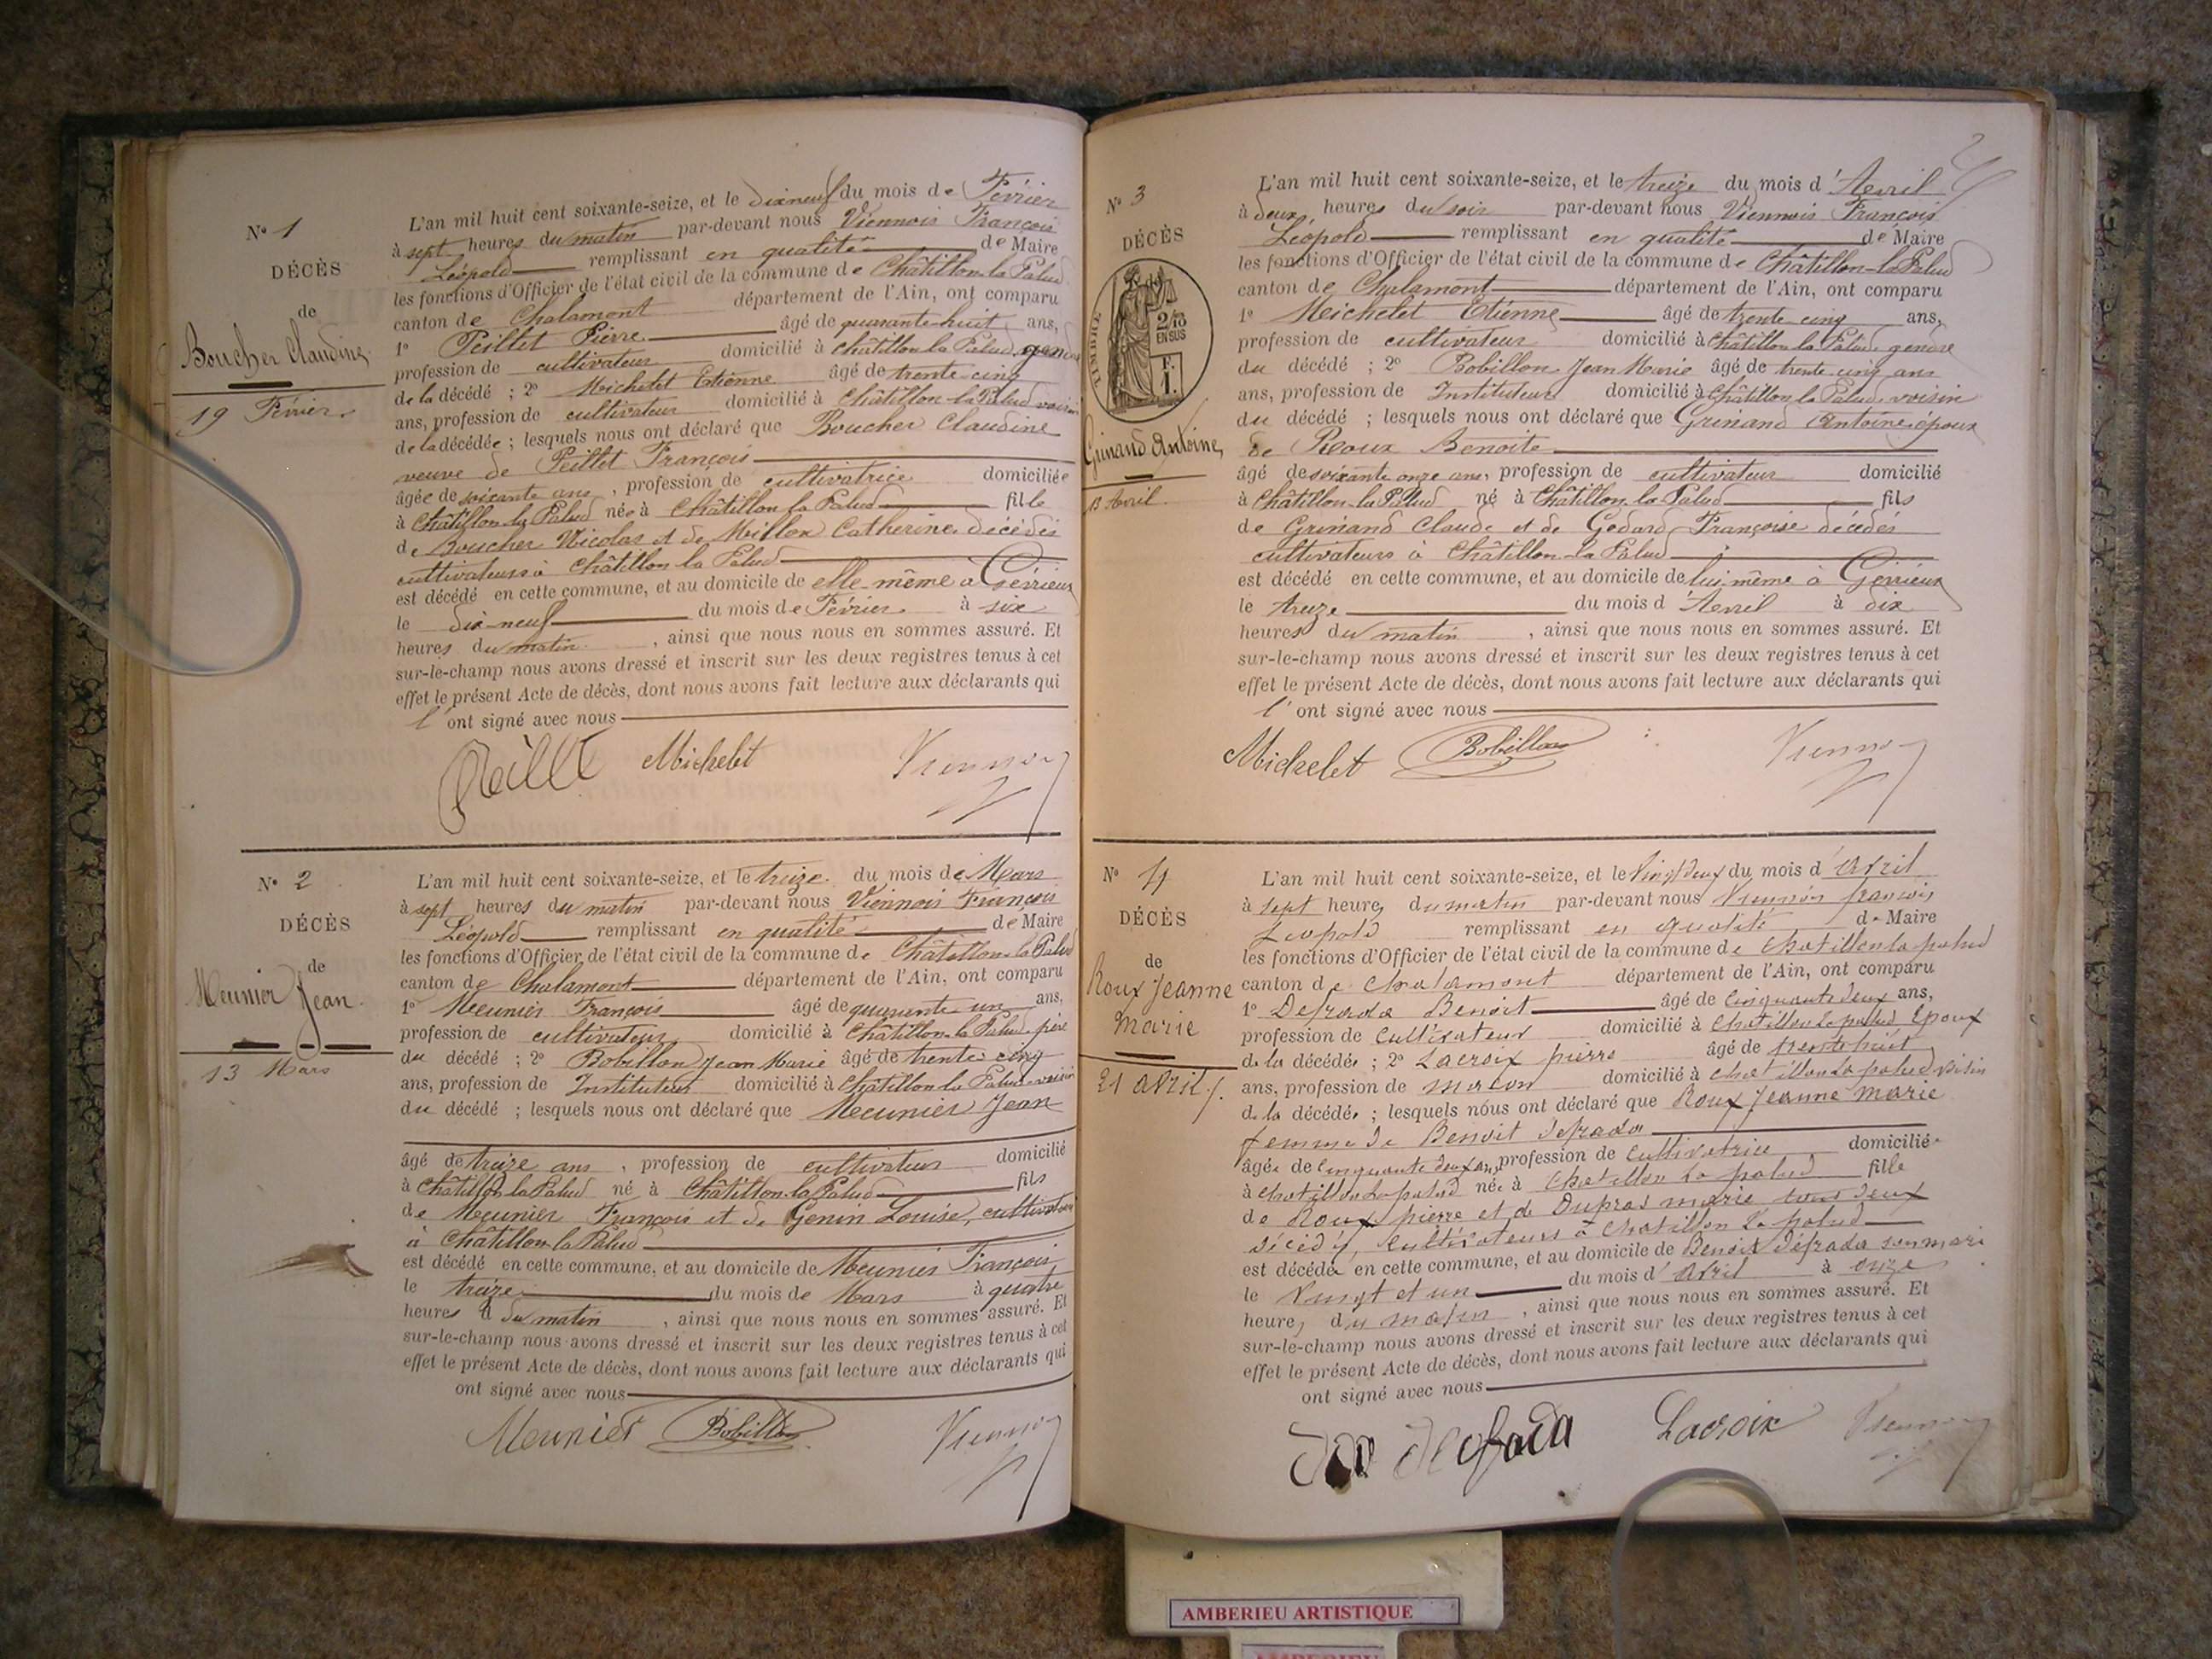 N° 1
DÉCÈS
de
Boucher Claudine
19 Février
L'an mil huit cent soixante-seize, et le dixneuf du mois de Février
à sept heures du matin par-devant nous Viennois François
Léopold remplissant en qualité de Maire
les fonctions d'Officier de l'état civil de la commune de Châtillon la Palud
canton de Chalamont département de l'Ain, ont comparu
1° Peillet Pierre âgé de quarante-huit ans,
profession de cultivateur domicilié à Châtillon la Palud, gendre
de la décédé ; 2° Michelet Etienne âgé de trente cinq
ans, profession de cultivateur domicilié à Châtillon la Palud voisin
de la décédée ; lesquels nous ont déclaré que Boucher Claudine
veuve de Peillet François
âgée de soixante ans, profession de cultivatrice domiciliée
à Châtillon la Palud née à Châtillon la Palud fille
de Boucher Nicolas et de Millon Catherine décédés
cultivateurs à Châtillon la Palud
est décédé en cette commune, et au domicile de elle même à Gévrieux
le dix-neuf du mois de Février à six
heures du matin, ainsi que nous nous en sommes assuré. Et
sur-le-champ nous avons dressé et inscrit sur les deux registres tenus à cet
effet le présent Acte de décès, dont nous avons fait lecture aux déclarants qui
l'ont signé avec nous
Michelet Viennois
N° 2
DÉCÈS
de
Meunier Jean
13 Mars
L'an mil huit cent soixante-seize, et le treize du mois de Mars
à sept heures du matin par-devant nous Viennois François
Léopold remplissant en qualité de Maire
les fonctions d'Officier de l'état civil de la commune de Châtillon la Palud
canton de Chalamont département de l'Ain, ont comparu
1° Meunier François âgé de quarante un ans,
profession de cultivateur domicilié à Châtillon la Palud père
du décédé ; 2° Bobillon Jean Marie âgé de trente cinq
ans, profession de Instituteur domicilié à Châtillon la Palud voisin
du décédé ; lesquels nous ont déclaré que Meunier Jean
âgé de treize ans, profession de cultivateur domicilié
à Châtillon la Palud né à Châtillon la Palud fils
de Meunier François et de Genin Louise, cultivateurs
à Châtillon la Palud
est décédé en cette commune, et au domicile de Meunier François
le treize du mois de Mars à quatre
heures d du matin, ainsi que nous nous en sommes assuré. Et
sur-le-champ nous avons dressé et inscrit sur les deux registres tenus à cet
effet le présent Acte de décès, dont nous avons fait lecture aux déclarants qui
ont signé avec nous
Meunier Bobillon Viennois
N° 3
DÉCÈS
TIMBRE
2/10
EN SUS
F.
1.
Grinand Antoine
13 Avril
L'an mil huit cent soixante-seize, et le treize du mois d'Avril
à deux heures du soir par-devant nous Viennois François
Léopold remplissant en qualité de Maire
les fonctions d'Officier de l'état civil de la commune de Châtillon-la-Palud
canton de Chalamont département de l'Ain, ont comparu
1° Michelet Etienne âgé de trente cinq ans,
profession de cultivateur domicilié à Châtillon la Palud, gendre
du décédé ; 2° Bobillon Jean Marie âgé de trente cinq ans
ans, profession de Instituteur domicilié à Châtillon la Palud, voisin
du décédé ; lesquels nous ont déclaré que Grinand Antoine époux
de Roux Benoite
âgé de soixante onze ans, profession de cultivateur domicilié
à Châtillon la Palud né à Châtillon la Palud fils
de Grinand Claude et de Godard Françoise décédés
cultivateurs à Châtillon la Palud
est décédé en cette commune, et au domicile de lui même à Gévrieux
le treize du mois d'Avril à dix
heures du matin, ainsi que nous nous en sommes assuré. Et
sur-le-champ nous avons dressé et inscrit sur les deux registres tenus à cet
effet le présent Acte de décès, dont nous avons fait lecture aux déclarants qui
l'ont signé avec nous
Michelet Bobillon Viennois
N° 4
DÉCÈS
de
Roux Jeanne
Marie
21 avril
L'an mil huit cent soixante-seize, et le vingt deux du mois d'avril
à sept heures du matin par-devant nous Viennois françois
Léopold remplissant en qualité de Maire
les fonctions d'Officier de l'état civil de la commune de Chatillon la palud
canton de Chalamont département de l'Ain, ont comparu
1° Defrada Benoit âgé de Cinquante deux ans,
profession de Cultivateur domicilié à Chatillon la palud Epoux
de la décédée ; 2° Lacroix pierre âgé de trente huit
ans, profession de maçon domicilié à Chatillon la palud voisin
de la décédée ; lesquels nous ont déclaré que Roux Jeanne marie
femme de Benoit defrada
âgée de Cinquante deux ans, profession de Cultivatrice domicilié
à Chatillon la palud née à Chatillon La palud fille
de Roux pierre et de Dupras marie tous deux
décédés, Cultivateurs à Chatillon La palud
est décédée en cette commune, et au domicile de Benoit défrada son mari
le Vingt et un du mois d'avril à onze
heures du matin, ainsi que nous nous en sommes assuré. Et
sur-le-champ nous avons dressé et inscrit sur les deux registres tenus à cet
effet le présent Acte de décès, dont nous avons fait lecture aux déclarants qui
ont signé avec nous
Lacroix Viennois
AMBERIEU ARTISTIQUE
AMBERIEU